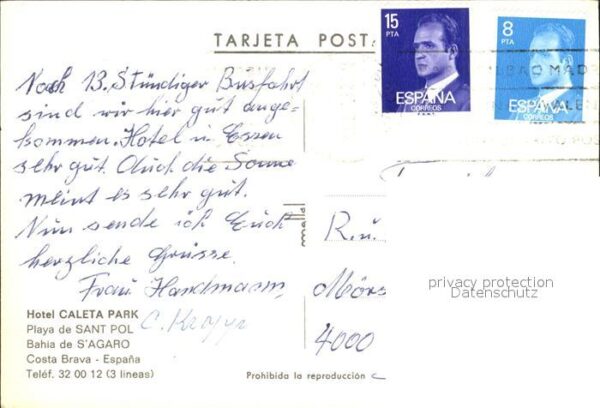 TARJETA POST
15
PTA
ESPAÑA
CORREOS
8
PTA
ESPAÑA
CORREOS
BAO MAD
Nach 13. Stündiger Busfahrt
sind wir hier gut ange-
kommen. Hotel u Essen
sehr gut. Auch die Sonne
meint es sehr gut.
Nun sende ich Euch
herzliche Grüsse.
Frau
R. u.
Mörs
4000
privacy protection
Datenschutz
Hotel CALETA PARK
Playa de SANT POL
Bahia de S'AGARO
Costa Brava - España
Teléf. 32 00 12 (3 lineas)
Prohibida la reproducción